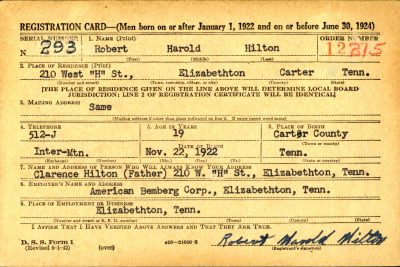 REGISTRATION CARD—(Men born on or after January 1, 1922 and on or before June 30, 1924)
SERIAL NUMBER 1. NAME (Print) ORDER NUMBER
N 293 Robert Harold Hilton 12315
(First) (Middle) (Last)
2. PLACE OF RESIDENCE (Print)
210 West "H" St., Elizabethton Carter Tenn.
(Number and street) (Town, township, village, or city) (County) (State)
[THE PLACE OF RESIDENCE GIVEN ON THE LINE ABOVE WILL DETERMINE LOCAL BOARD
JURISDICTION; LINE 2 OF REGISTRATION CERTIFICATE WILL BE IDENTICAL]
3. MAILING ADDRESS
Same
[Mailing address if other than place indicated on line 2. If same insert word same]
4. TELEPHONE 5. AGE IN YEARS 6. PLACE OF BIRTH
512-J 19 Carter County
DATE OF BIRTH
Inter-Mtn. Nov. 22, 1922 Tenn.
7. NAME AND ADDRESS OF PERSON WHO WILL ALWAYS KNOW YOUR ADDRESS
Clarence Hilton (Father) 210 W. "H" St., Elizabethton, Tenn.
8. EMPLOYER'S NAME AND ADDRESS
American Bemberg Corp., Elizabethton, Tenn.
9. PLACE OF EMPLOYMENT OR BUSINESS
Elizabethton, Tenn.
(Number and street or R. F. D. number) (Town) (County) (State)
I AFFIRM THAT I HAVE VERIFIED ABOVE ANSWERS AND THAT THEY ARE TRUE.
D. S. S. Form 1
(Revised 6-1-42) (over) Robert Harold Hilton
(Registrant's signature)